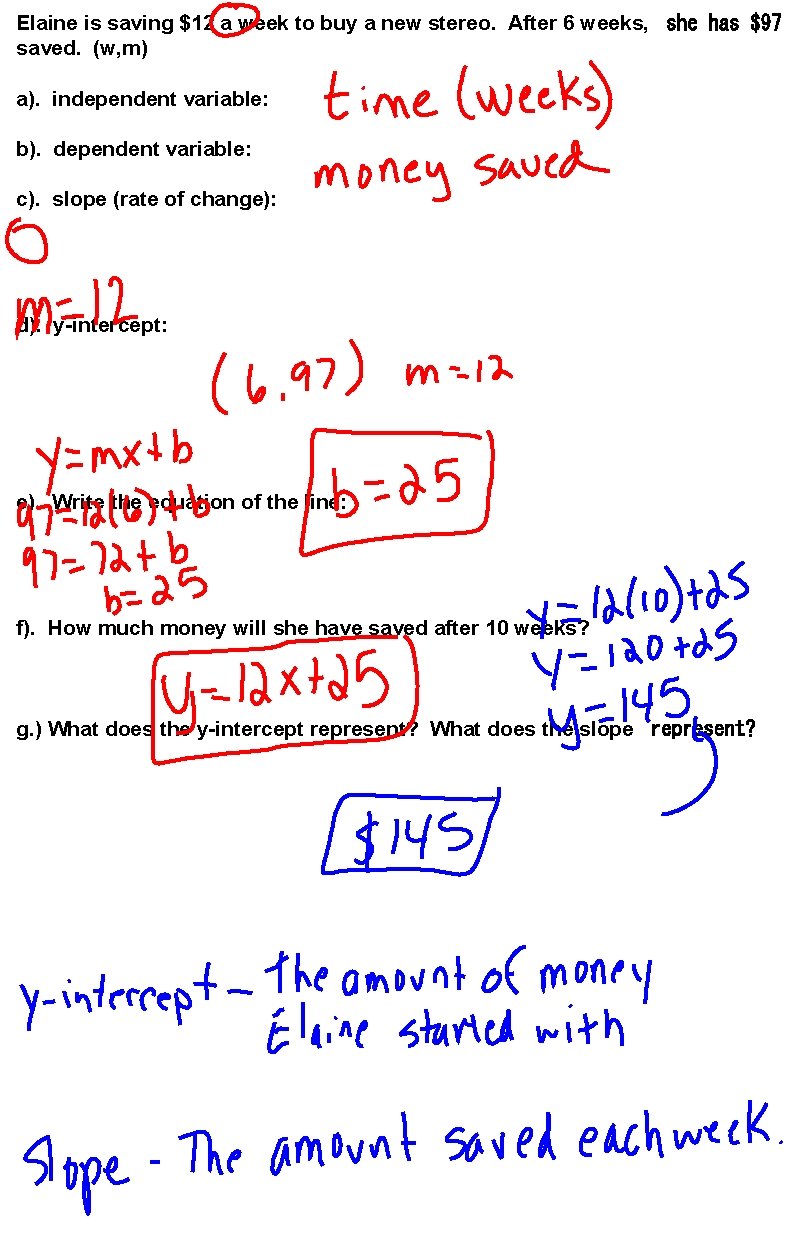 Elaine is saving $12 a week to buy a new stereo. After 6 weeks, she has $97
saved. (w,m)
a). independent variable:
time (weeks)
b). dependent variable:
money saved
c). slope (rate of change):
m=12
d). y-intercept:
(6,97) m=12
y=mx+b
b=25
e). Write the equation of the line:
97=12(6)+b
97=72+b
b=25
y=12(10)+25
f). How much money will she have saved after 10 weeks?
y=120+25
y=12x+25
y=145
g.) What does the y-intercept represent? What does the slope represent?
$145
y-intercept - The amount of money
Elaine started with
Slope - The amount saved each week.